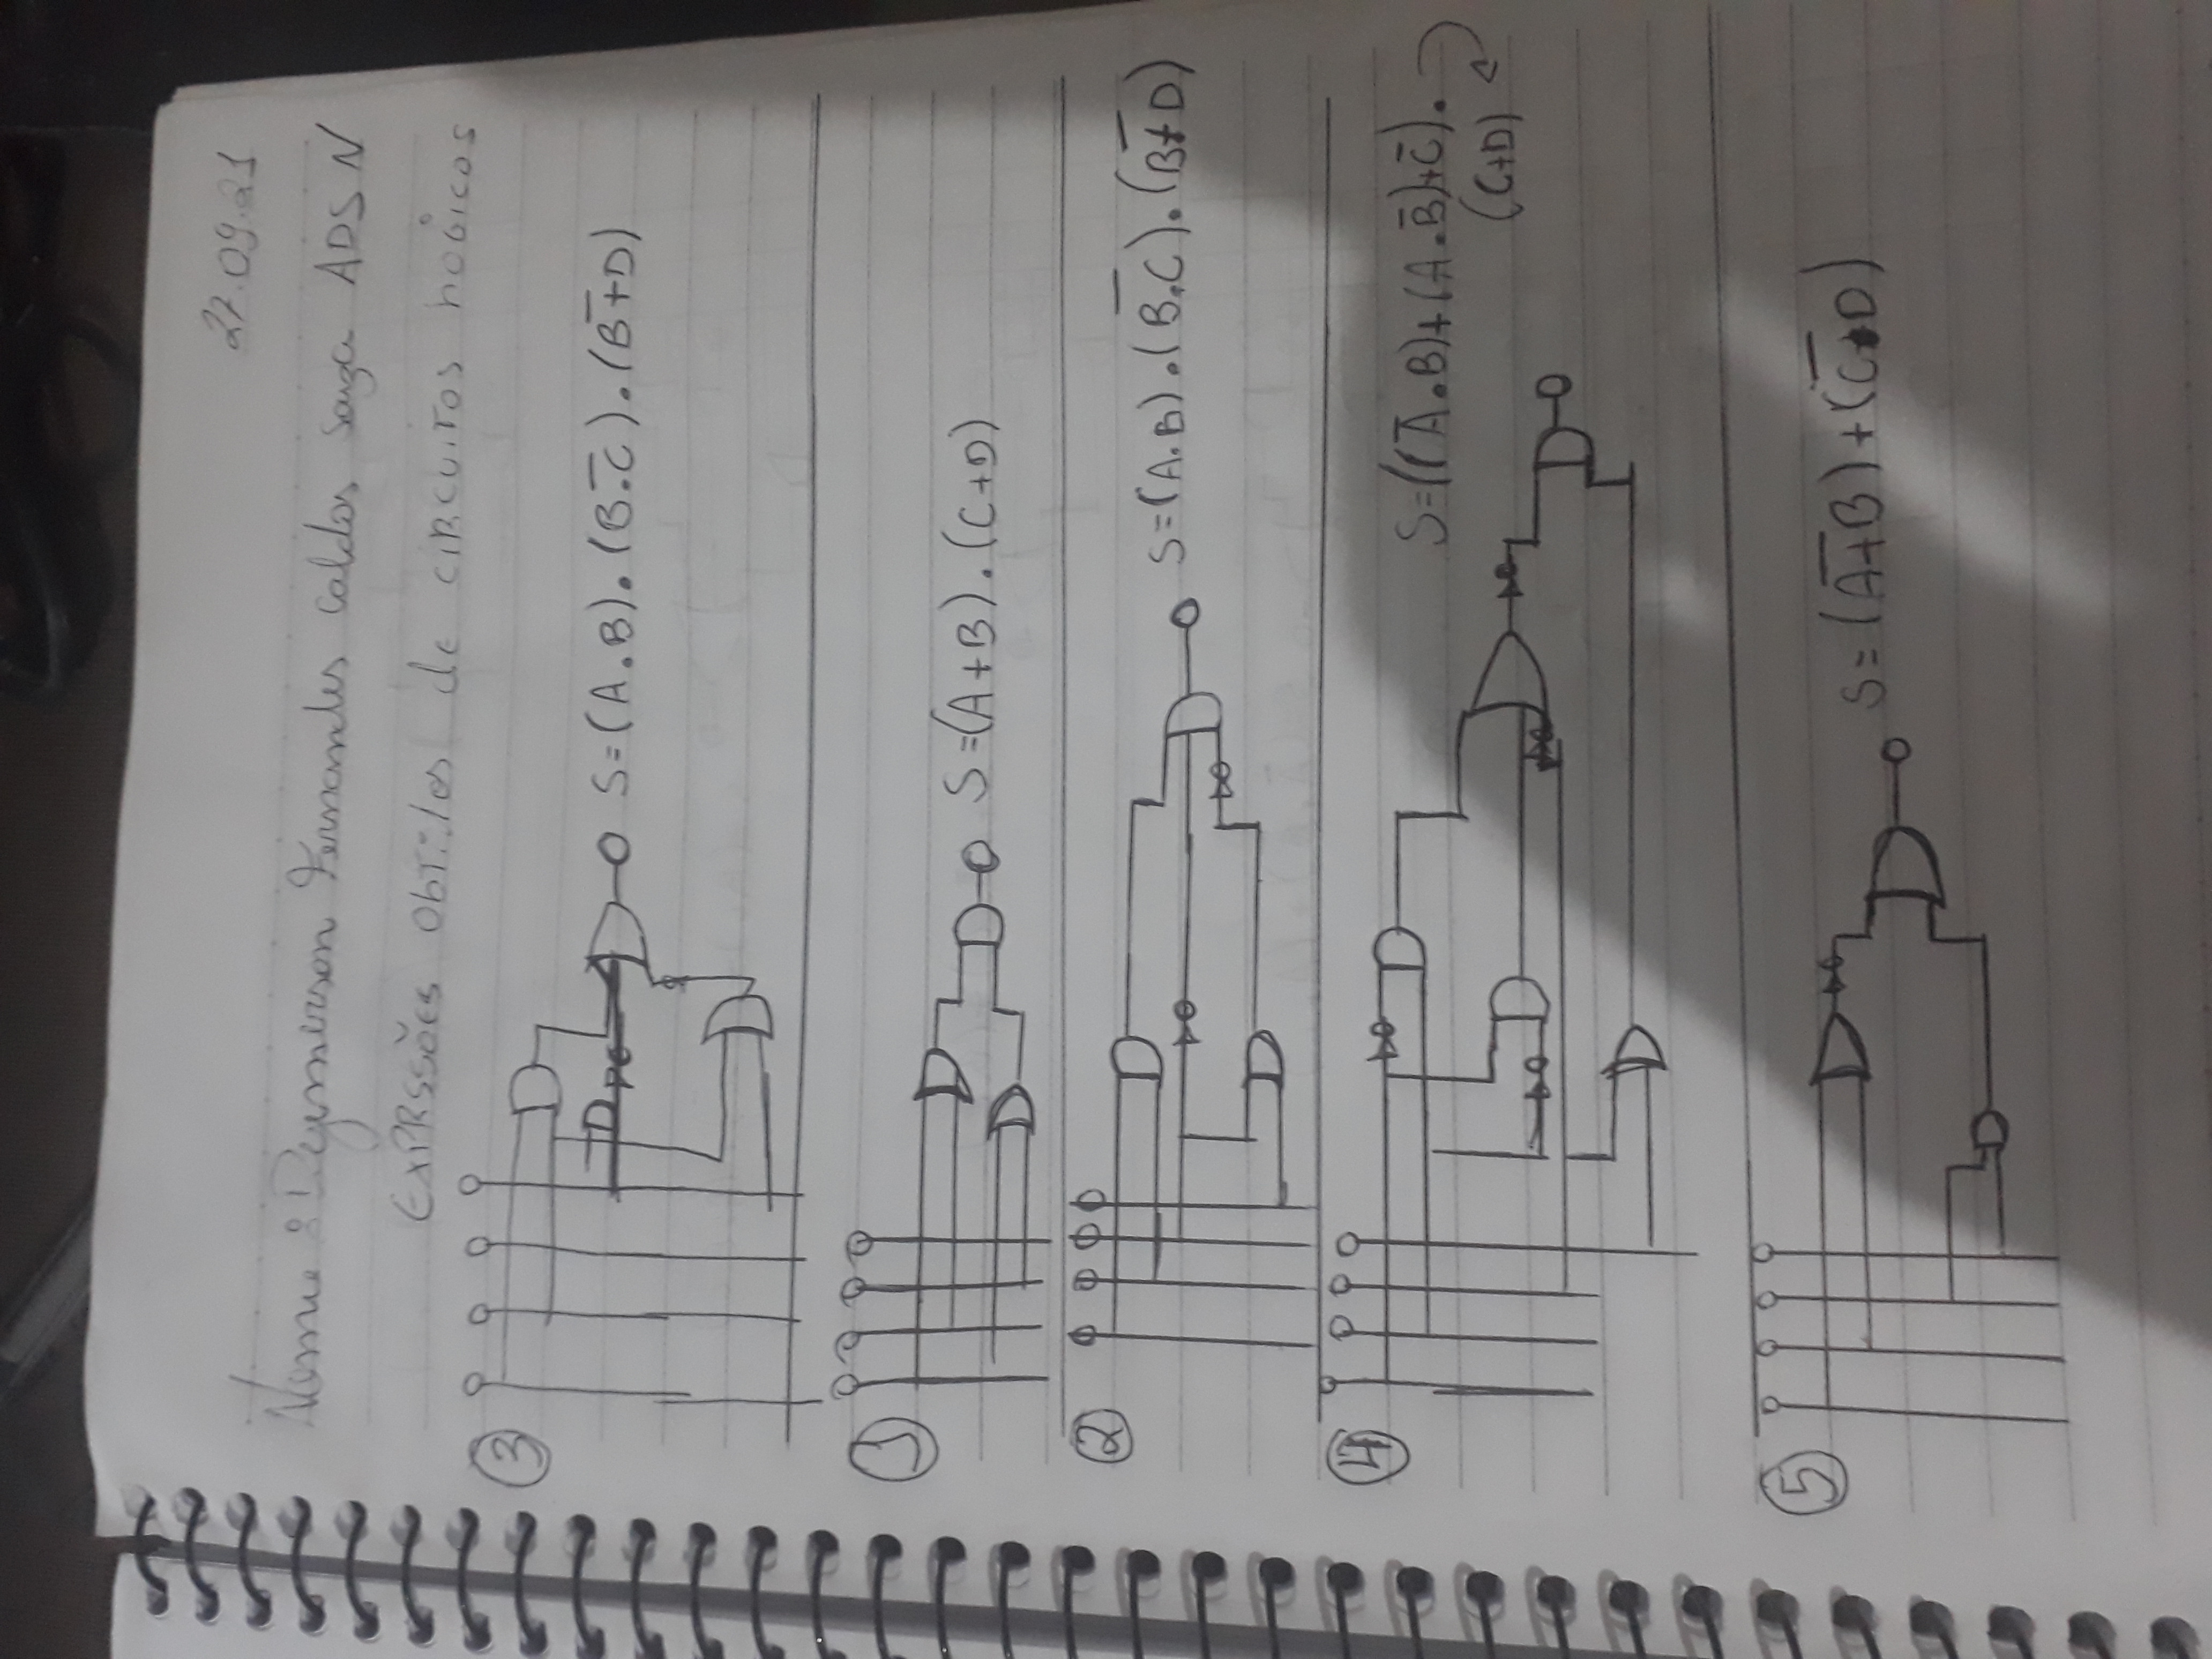 27.09.21
Nome: Deyemerson Fernandes Caldas Souza ADS N
EXPRSSÕES Obtidas de CIRCUITOS LOGICOS
③ S=(A.B).(B.̅C).(B+̅D)
① S=(A+B).(C+D)
② S=(A.B).(B.̅C).(B+̅D)
④ S=((A̅.B)+(A.B̅)+C̅).
(C+D)
⑤ S=(A+̅B)+(C.̅D)